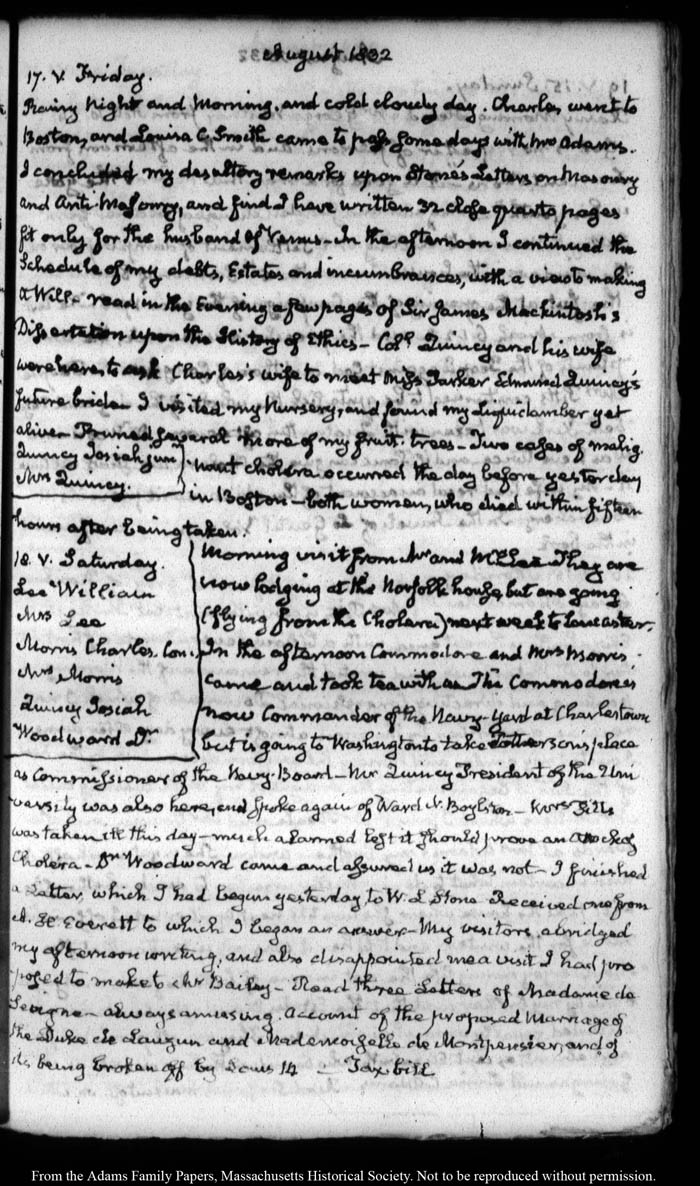 August 1832
17. V. Friday.
Rainy Night and Morning, and cold cloudy day. Charles went to
Boston, and Louisa C. Smith came to pass some days with Mrs Adams.
I concluded my desultory remarks upon Stone's Letters on Masonry
and Anti-Masonry, and find I have written 32 close quarto pages
fit only for the husband of Venus - In the afternoon I continued the
Schedule of my debts, Estates and incumbrances, with a view to making
a Will - read in the Evening a few pages of Sir James Mackintosh's
Dissertation upon the History of Ethics - Coll. Quincy and his wife
were here to ask Charles's wife to meet Miss Parker Edmund Quincy's
future bride - I visited my Nursery, and found my Liquidamber yet
alive - Pruned several more of my fruit-trees - Two cases of malig-
Quincy Josiah jun
Mrs Quincy.
nant cholera occurred the day before yesterday
in Boston - both women, who died within fifteen
hours after being taken.
18. V. Saturday.
Lee William
Mrs Lee
Morris Charles. Com.
Mrs Morris
Quincy Josiah
Woodward Dr
Morning visit from Mr and Mrs Lee - They are
now lodging at the Norfolk house, but are going
(flying from the Cholera) next week to Lancaster.
In the afternoon Commodore and Mrs Morris
came and took tea with us The Commodore is
now Commander of the Navy-Yard at Charlestown
but is going to Washington to take Patterson's place
as Commissioner of the Navy-Board - Mr Quincy President of the Uni
versity was also here, and spoke again of Ward N. Boylston - Mrs
was taken ill this day - much alarmed lest it should prove an attack of
Cholera - Dr Woodward came and assured us it was not - I finished
a Letter which I had begun yesterday to W. L. Stone - Received one from
A. H. Everett to which I began an answer - My visitors abridged
my afternoon writing, and also disappointed me a visit I had pro
posed to make to Mr Bailey - Read three Letters of Madame de
Sevigne - always amusing. Account of the proposed Marriage of
the Duke de Lauzun and Mademoiselle de Montpensier, and of
its being broken off by Louis 14 - Tax bill
From the Adams Family Papers, Massachusetts Historical Society. Not to be reproduced without permission.